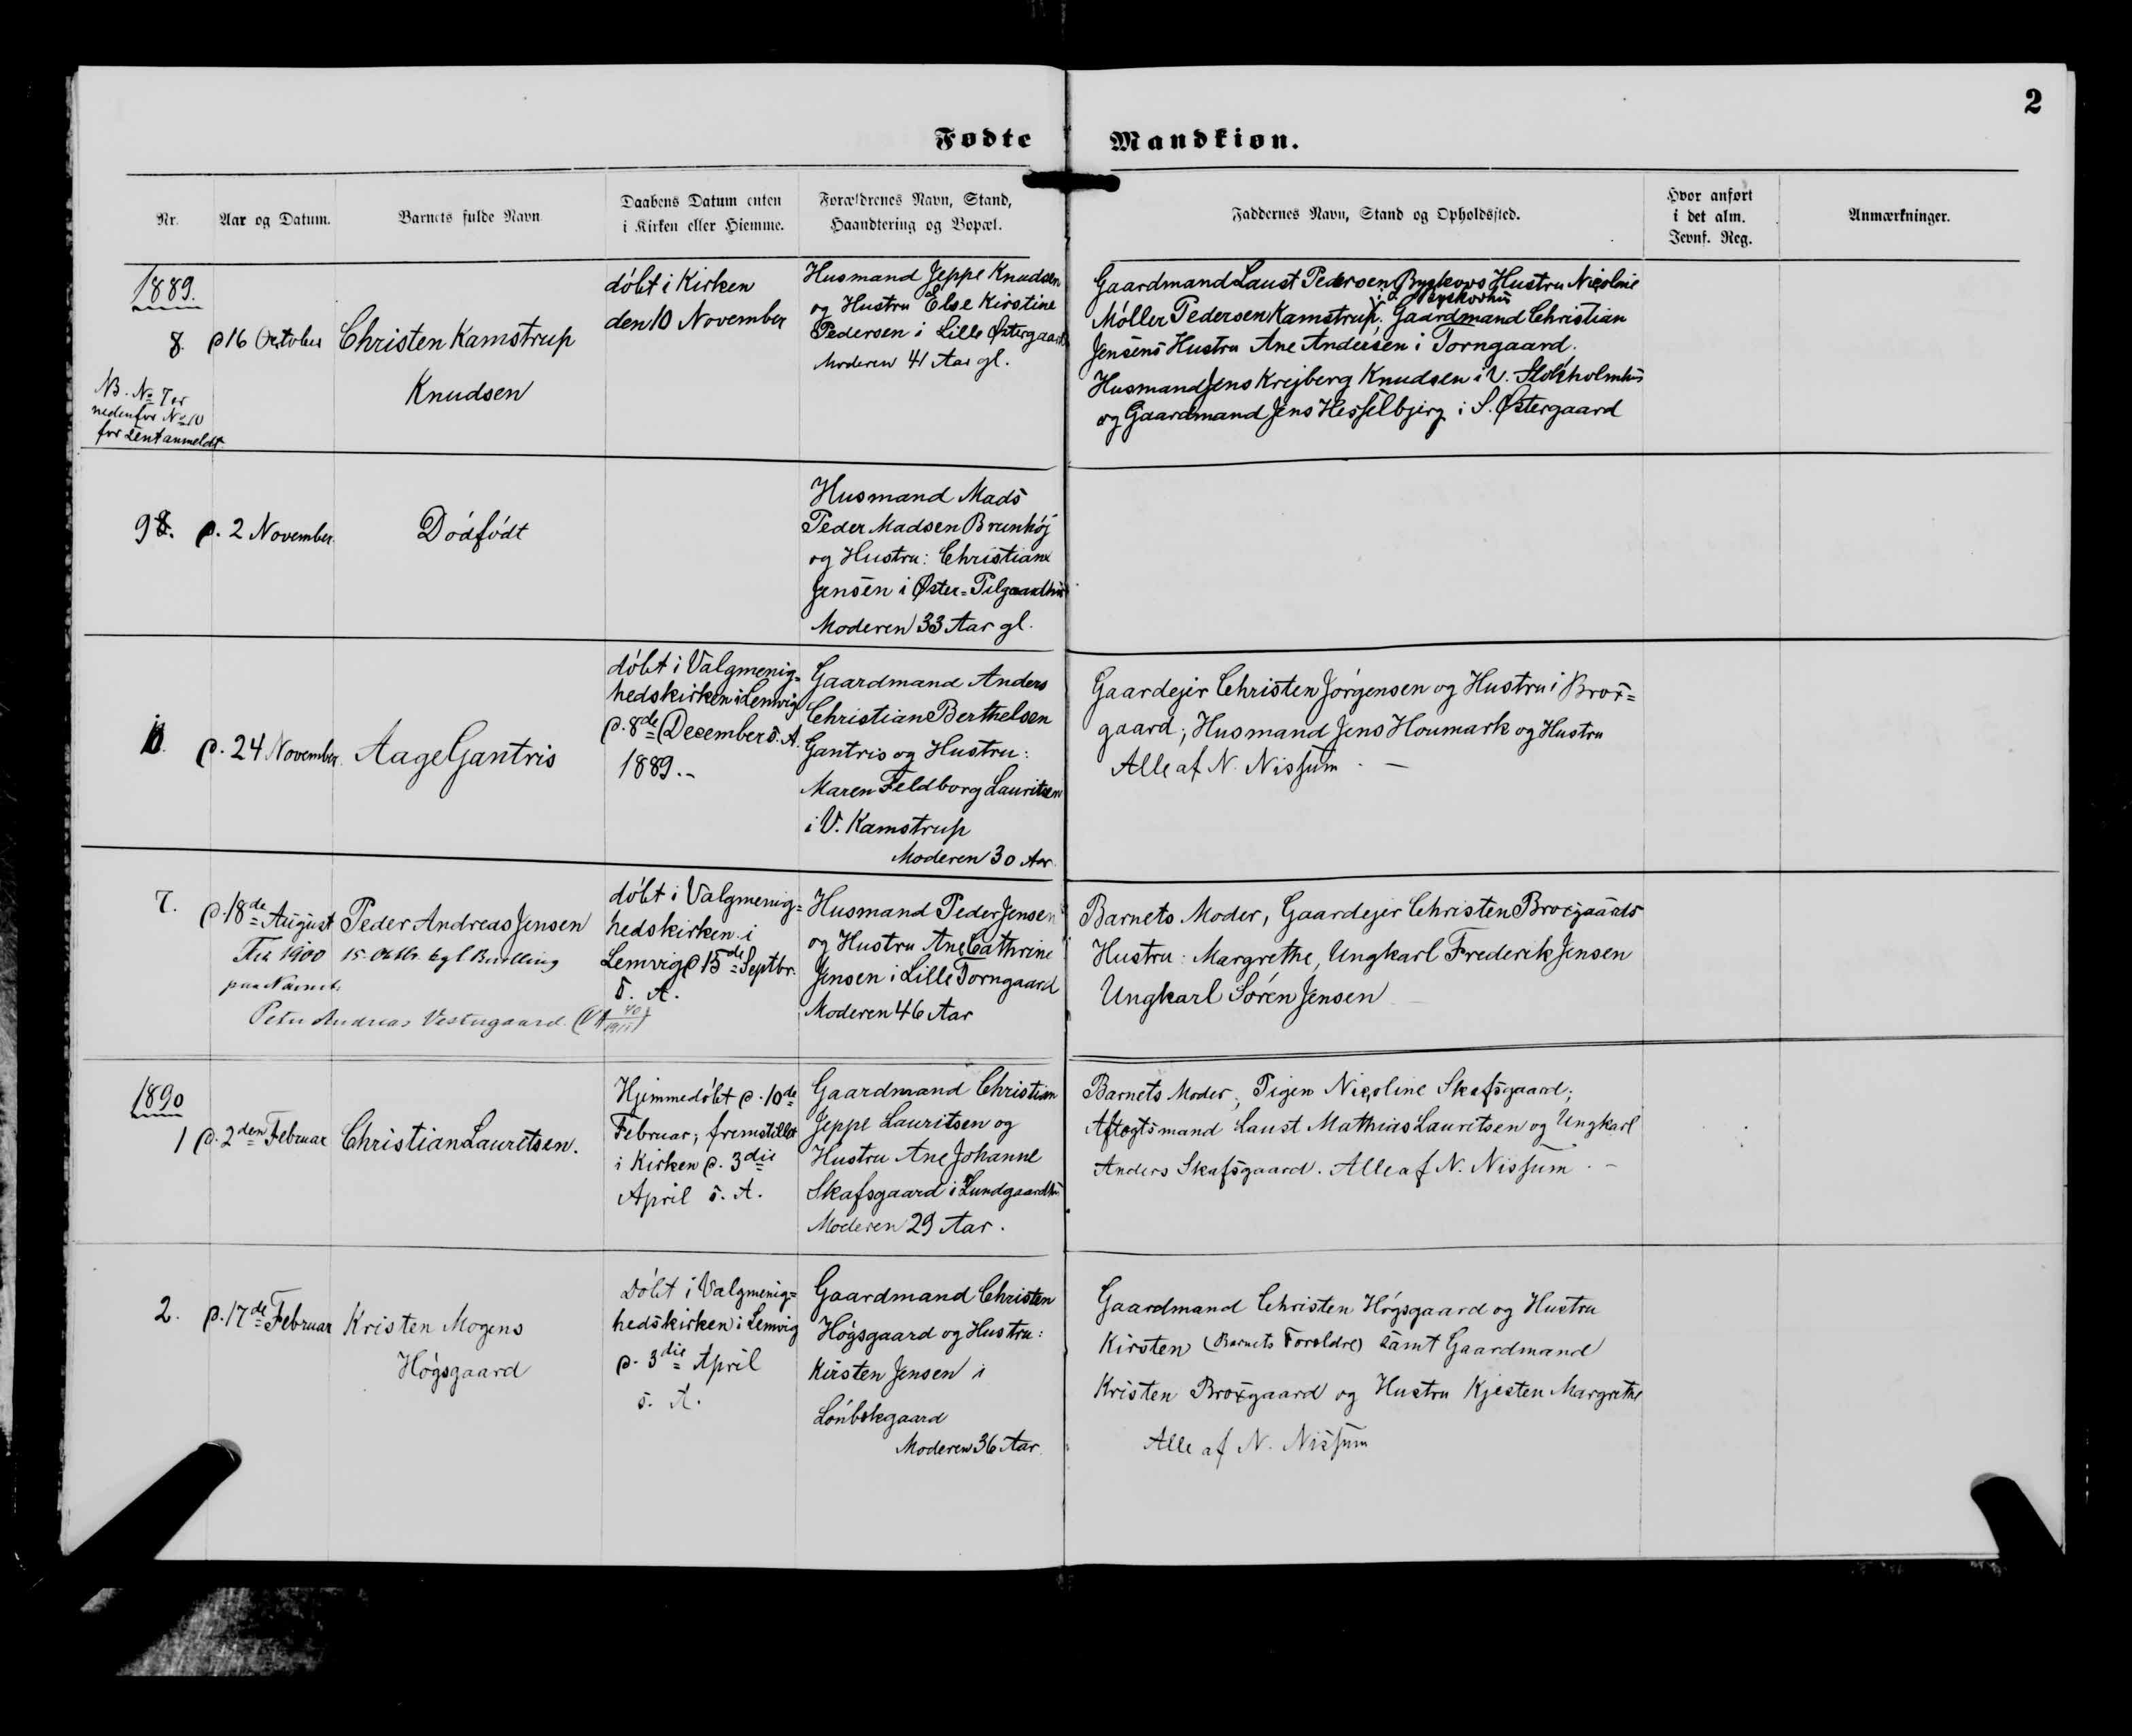 2
Fødte Mandkiøn.
Nr.
Aar og Datum.
Barnets fulde Navn
Daabens Datum enten
i Kirken eller Hiemme.
Forældrenes Navn, Stand,
Haandtering og Bopæl.
Faddernes Navn, Stand og Opholdssted.
Hvor anført
i det alm.
Jevnf. Reg.
Anmærkninger.
1889.
8.
NB. No 7 er
nedenfor No 10
for sent anmeldt
16 October
Christen Kamstrup
Knudsen
döbt i Kirken
den 10 November
Husmand Jeppe Knudsen
og Hustru Else Kirstine
Pedersen i Lille Østergaard
Moderen 41 Aar gl.
Gaardmand Laust Pedersen Byskovs Hustru Nicoline
Möller Pedersen Kamstrup; Gaardmand Christian
Jensens Hustru Ane Andersen i Torngaard.
Husmand Jens Krejberg Knudsen i V. Stokholmhus
og Gaardmand Jens Hesselbjerg i S. Østergaard
9
2 November.
Dödfödt
Husmand Mads
Peder Madsen Brunhöj
og Hustru: Christiane
Jensen i Øster-Pilgaardhus
Moderen 33 Aar gl.
10.
24 November.
Aage Gantris
döbt i Valgmenig=
hedskirken i Lemvig
8de December s. A.
1889.-
Gaardmand Anders
Christian Berthelsen
Gantris og Hustru:
Maren Feldborg Lauritsen
i V. Kamstrup
Moderen 30 Aar.
Gaardejer Christen Jörgensen og Hustru i Brox=
gaard; Husmand Jens Houmark og Hustru
Alle af N. Nissum. -
7.
18de August
Peder Andreas Jensen
1900 15. Oktbr. kgl Bevilling
paa Navnet:
Peter Andreas Vestergaard.
döbt i Valgmenig=
hedskirken i
Lemvig 15de Septbr.
s. A.
Husmand Peder Jensen
og Hustru Ane Cathrine
Jensen i Lille Torngaard
Moderen 46 Aar
Barnets Moder, Gaardejer Christen Broxgaards
Hustru: Margrethe, Ungkarl Frederik Jensen
Ungkarl Sören Jensen
1890
1
2den Februar
Christian Lauritsen.
Hjemmedöbt 10de
Februar; fremstillet
i Kirken 3die
April s. A.
Gaardmand Christian
Jeppe Lauritsen og
Hustru Ane Johanne
Skafsgaard i Lundgaardhus
Moderen 29 Aar.
Barnets Moder; Pigen Nicoline Skafsgaard;
Aftægtsmand Laust Mathias Lauritsen og Ungkarl
Anders Skafsgaard. Alle af N. Nissum. -
2.
17de Februar
Kristen Mogens
Högsgaard
Döbt i Valgmenig=
hedskirken i Lemvig
3die April
s. A.
Gaardmand Christen
Högsgaard og Hustru:
Kirsten Jensen i
Lönbekgaard
Moderen 36 Aar.
Gaardmand Christen Högsgaard og Hustru
Kirsten (Barnets Foreldre) samt Gaardmand
Kristen Broxgaard og Hustru Kjesten Margrethe
Alle af N. Nissum